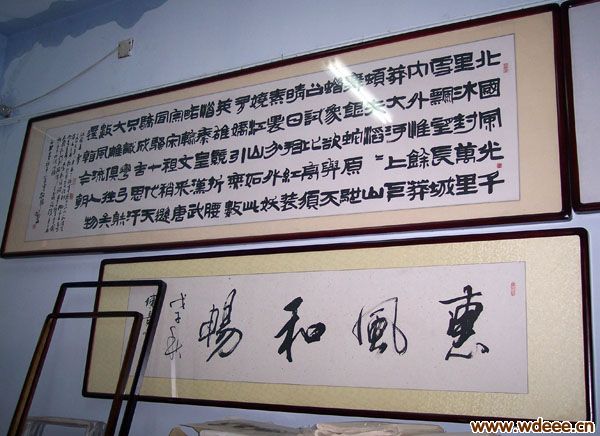 北國風光千
里冰封萬里
雪飄望長城
內外惟餘莽
莽大河上下
頓失滔〻山
舞銀蛇原馳
蠟象欲與天
公試比高須
晴日看紅裝
素裹分外妖
嬈江山如此
多嬌引無數
英雄競折腰
惜秦皇漢武
略輸文采唐
宗宋祖稍遜
風騷一代天
驕成吉思汗
只識彎弓射
大雕俱往矣
數風流人物
還看今朝
惠風和暢
戊子秋
www.wdeee.cn